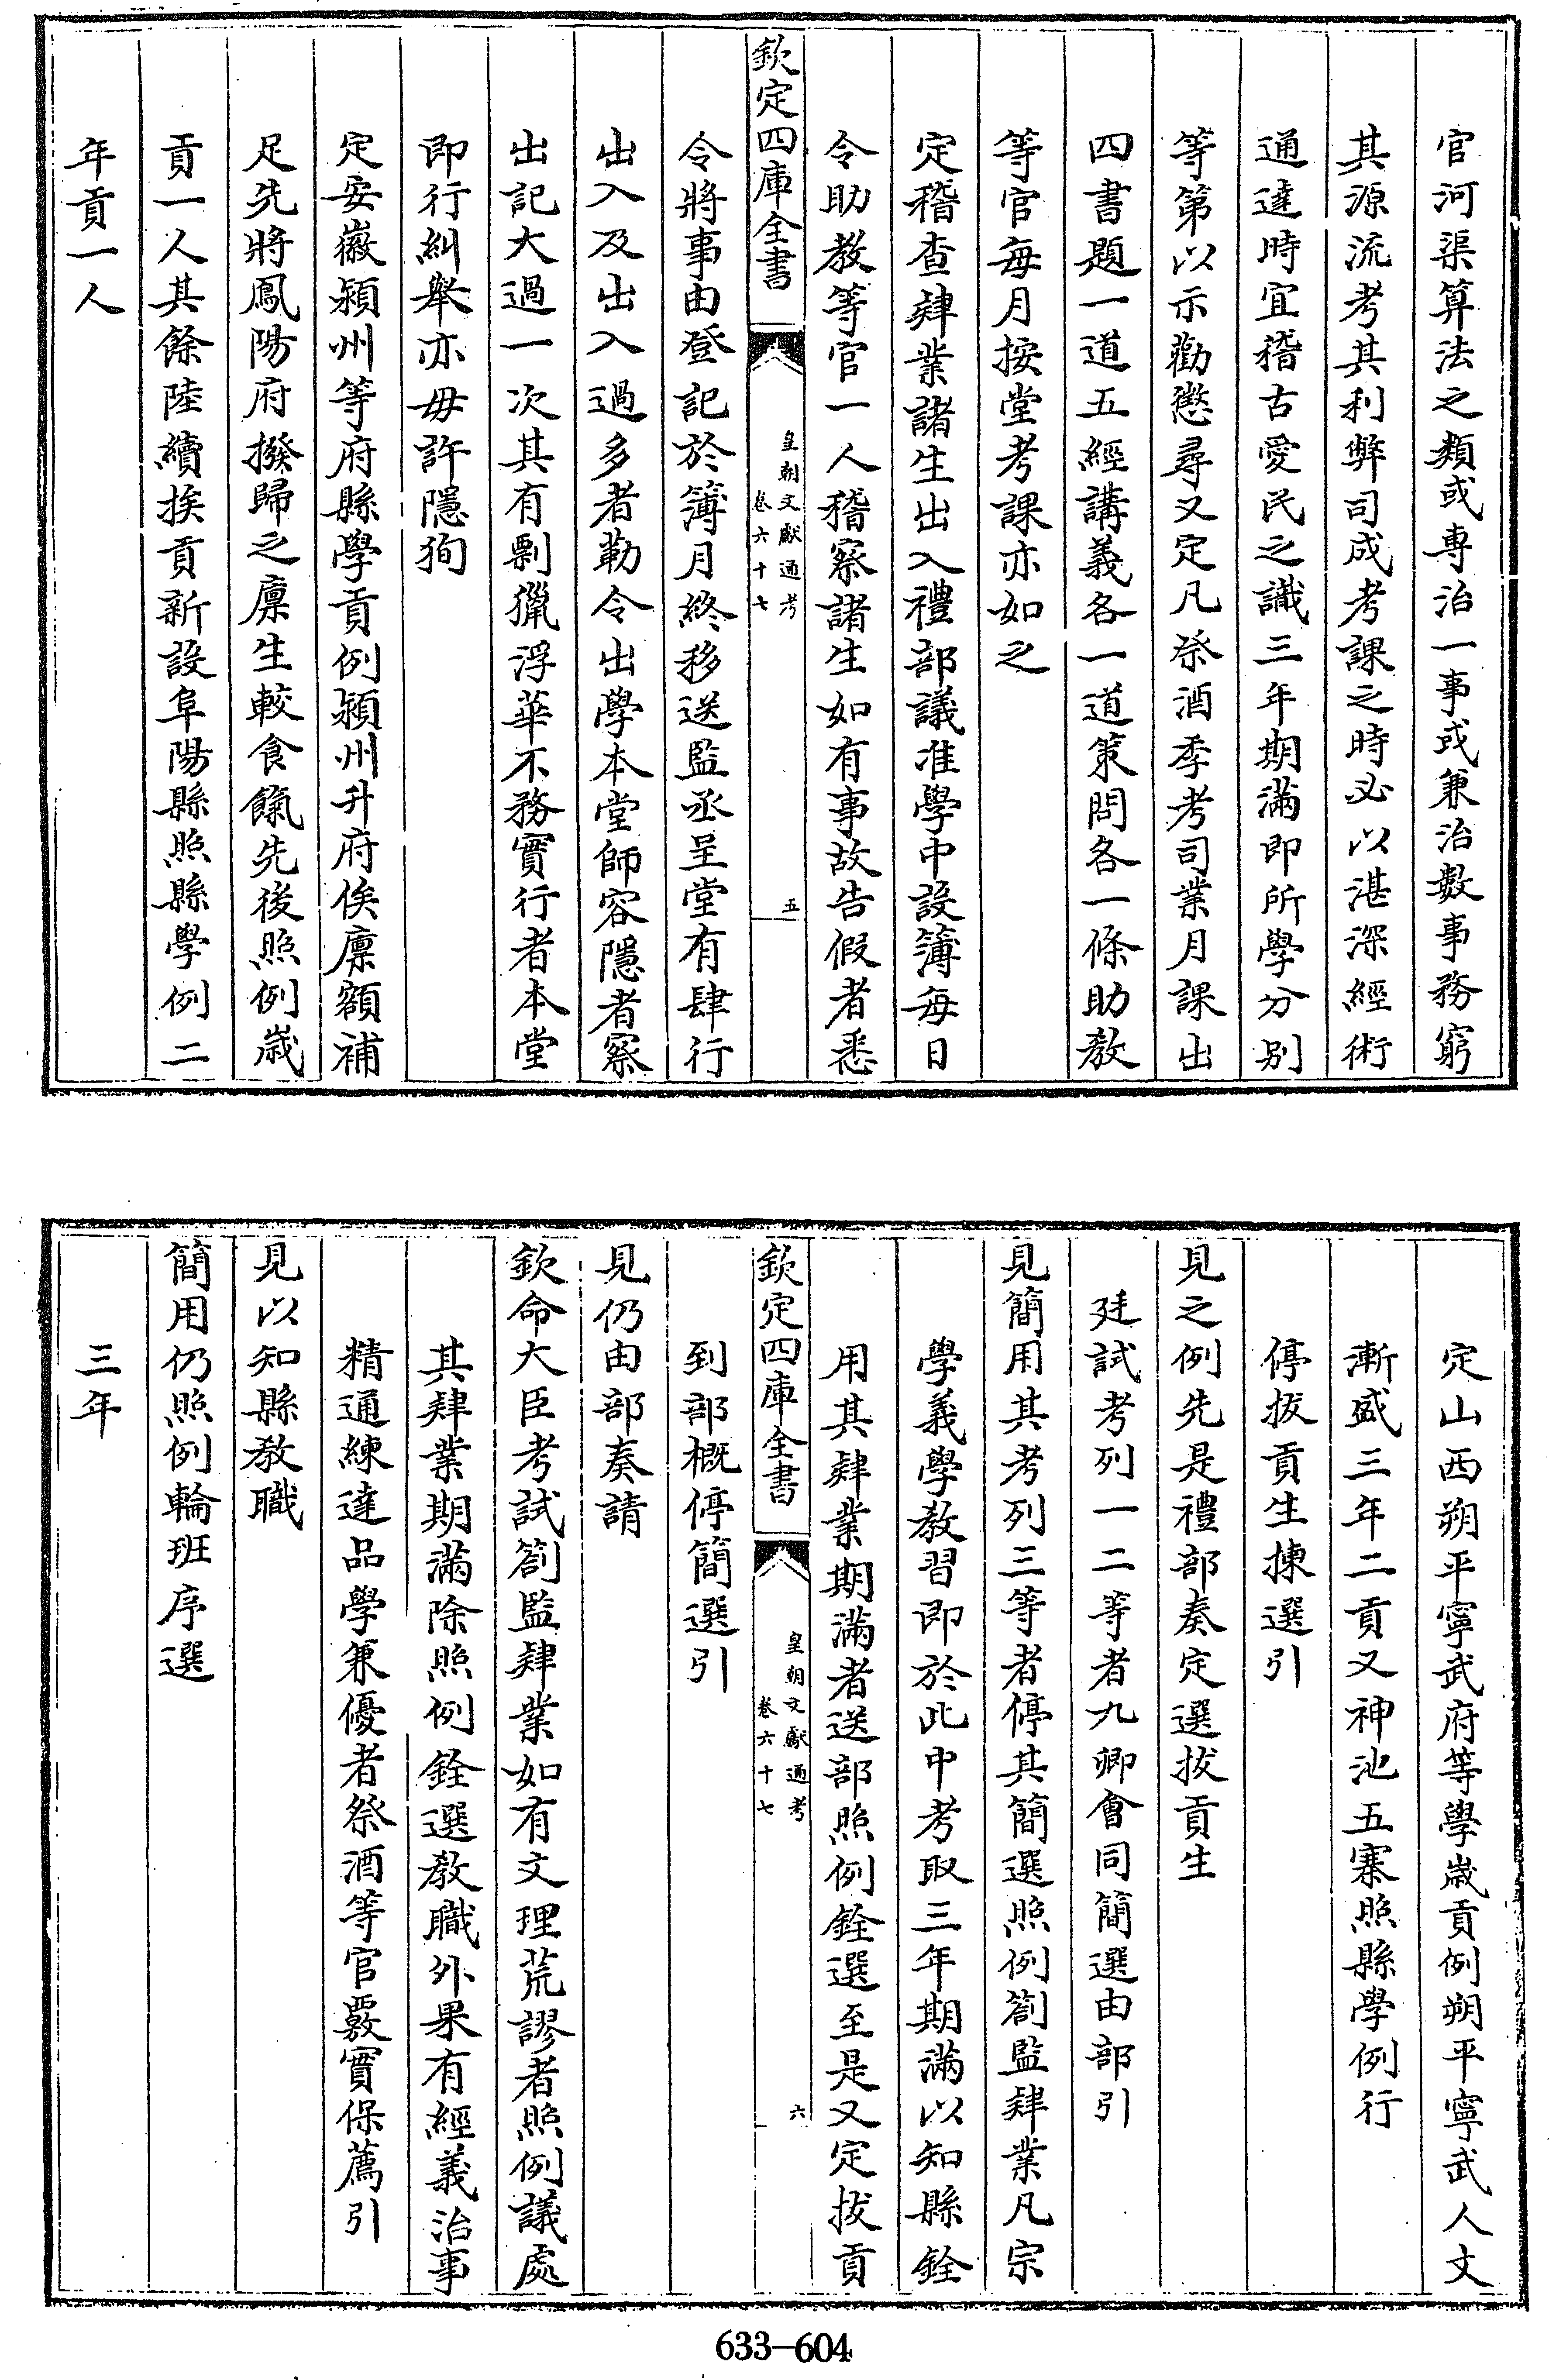 官河渠算法之類或專治一事或兼治數事務窮
其源流考其利弊司成考課之時必以湛深經術
通達時宜稽古愛民之識三年期滿即所學分别
等第以示勸懲尋又定凡祭酒季考司業月課出
四書題一道五經講義各一道策問各一條助教
等官每月按堂考課亦如之
定稽查肄業諸生出入禮部議准學中設簿每日
令助教等官一人稽察諸生如有事故告假者悉
欽定四庫全書
皇朝文獻通考
卷六十七
五
令將事由登記於簿月終移送監丞呈堂有肆行
出入及出入過多者勒令出學本堂師容隱者察
出記大過一次其有剽獵浮華不務實行者本堂
即行糾舉亦毋許隱狥
定安徽潁州等府縣學貢例潁州升府俟廪額補
足先將鳳陽府撥歸之廪生較食餼先後照例歲
貢一人其餘陸續挨貢新設阜陽縣照縣學例二
年貢一人
定山西朔平寧武府等學歲貢例朔平寧武人文
漸盛三年二貢又神池五寨照縣學例行
停拔貢生揀選引
見之例先是禮部奏定選拔貢生
廷試考列一二等者九卿會同簡選由部引
見簡用其考列三等者停其簡選照例劄監肄業凡宗
學義學教習即於此中考取三年期滿以知縣銓
用其肄業期滿者送部照例銓選至是又定拔貢
欽定四庫全書
皇朝文獻通考
卷六十七
六
到部概停簡選引
見仍由部奏請
欽命大臣考試劄監肄業如有文理荒謬者照例議處
其肄業期滿除照例銓選教職外果有經義治事
精通練達品學兼優者祭酒等官覈實保薦引
見以知縣教職
簡用仍照例輪班序選
三年
633-604